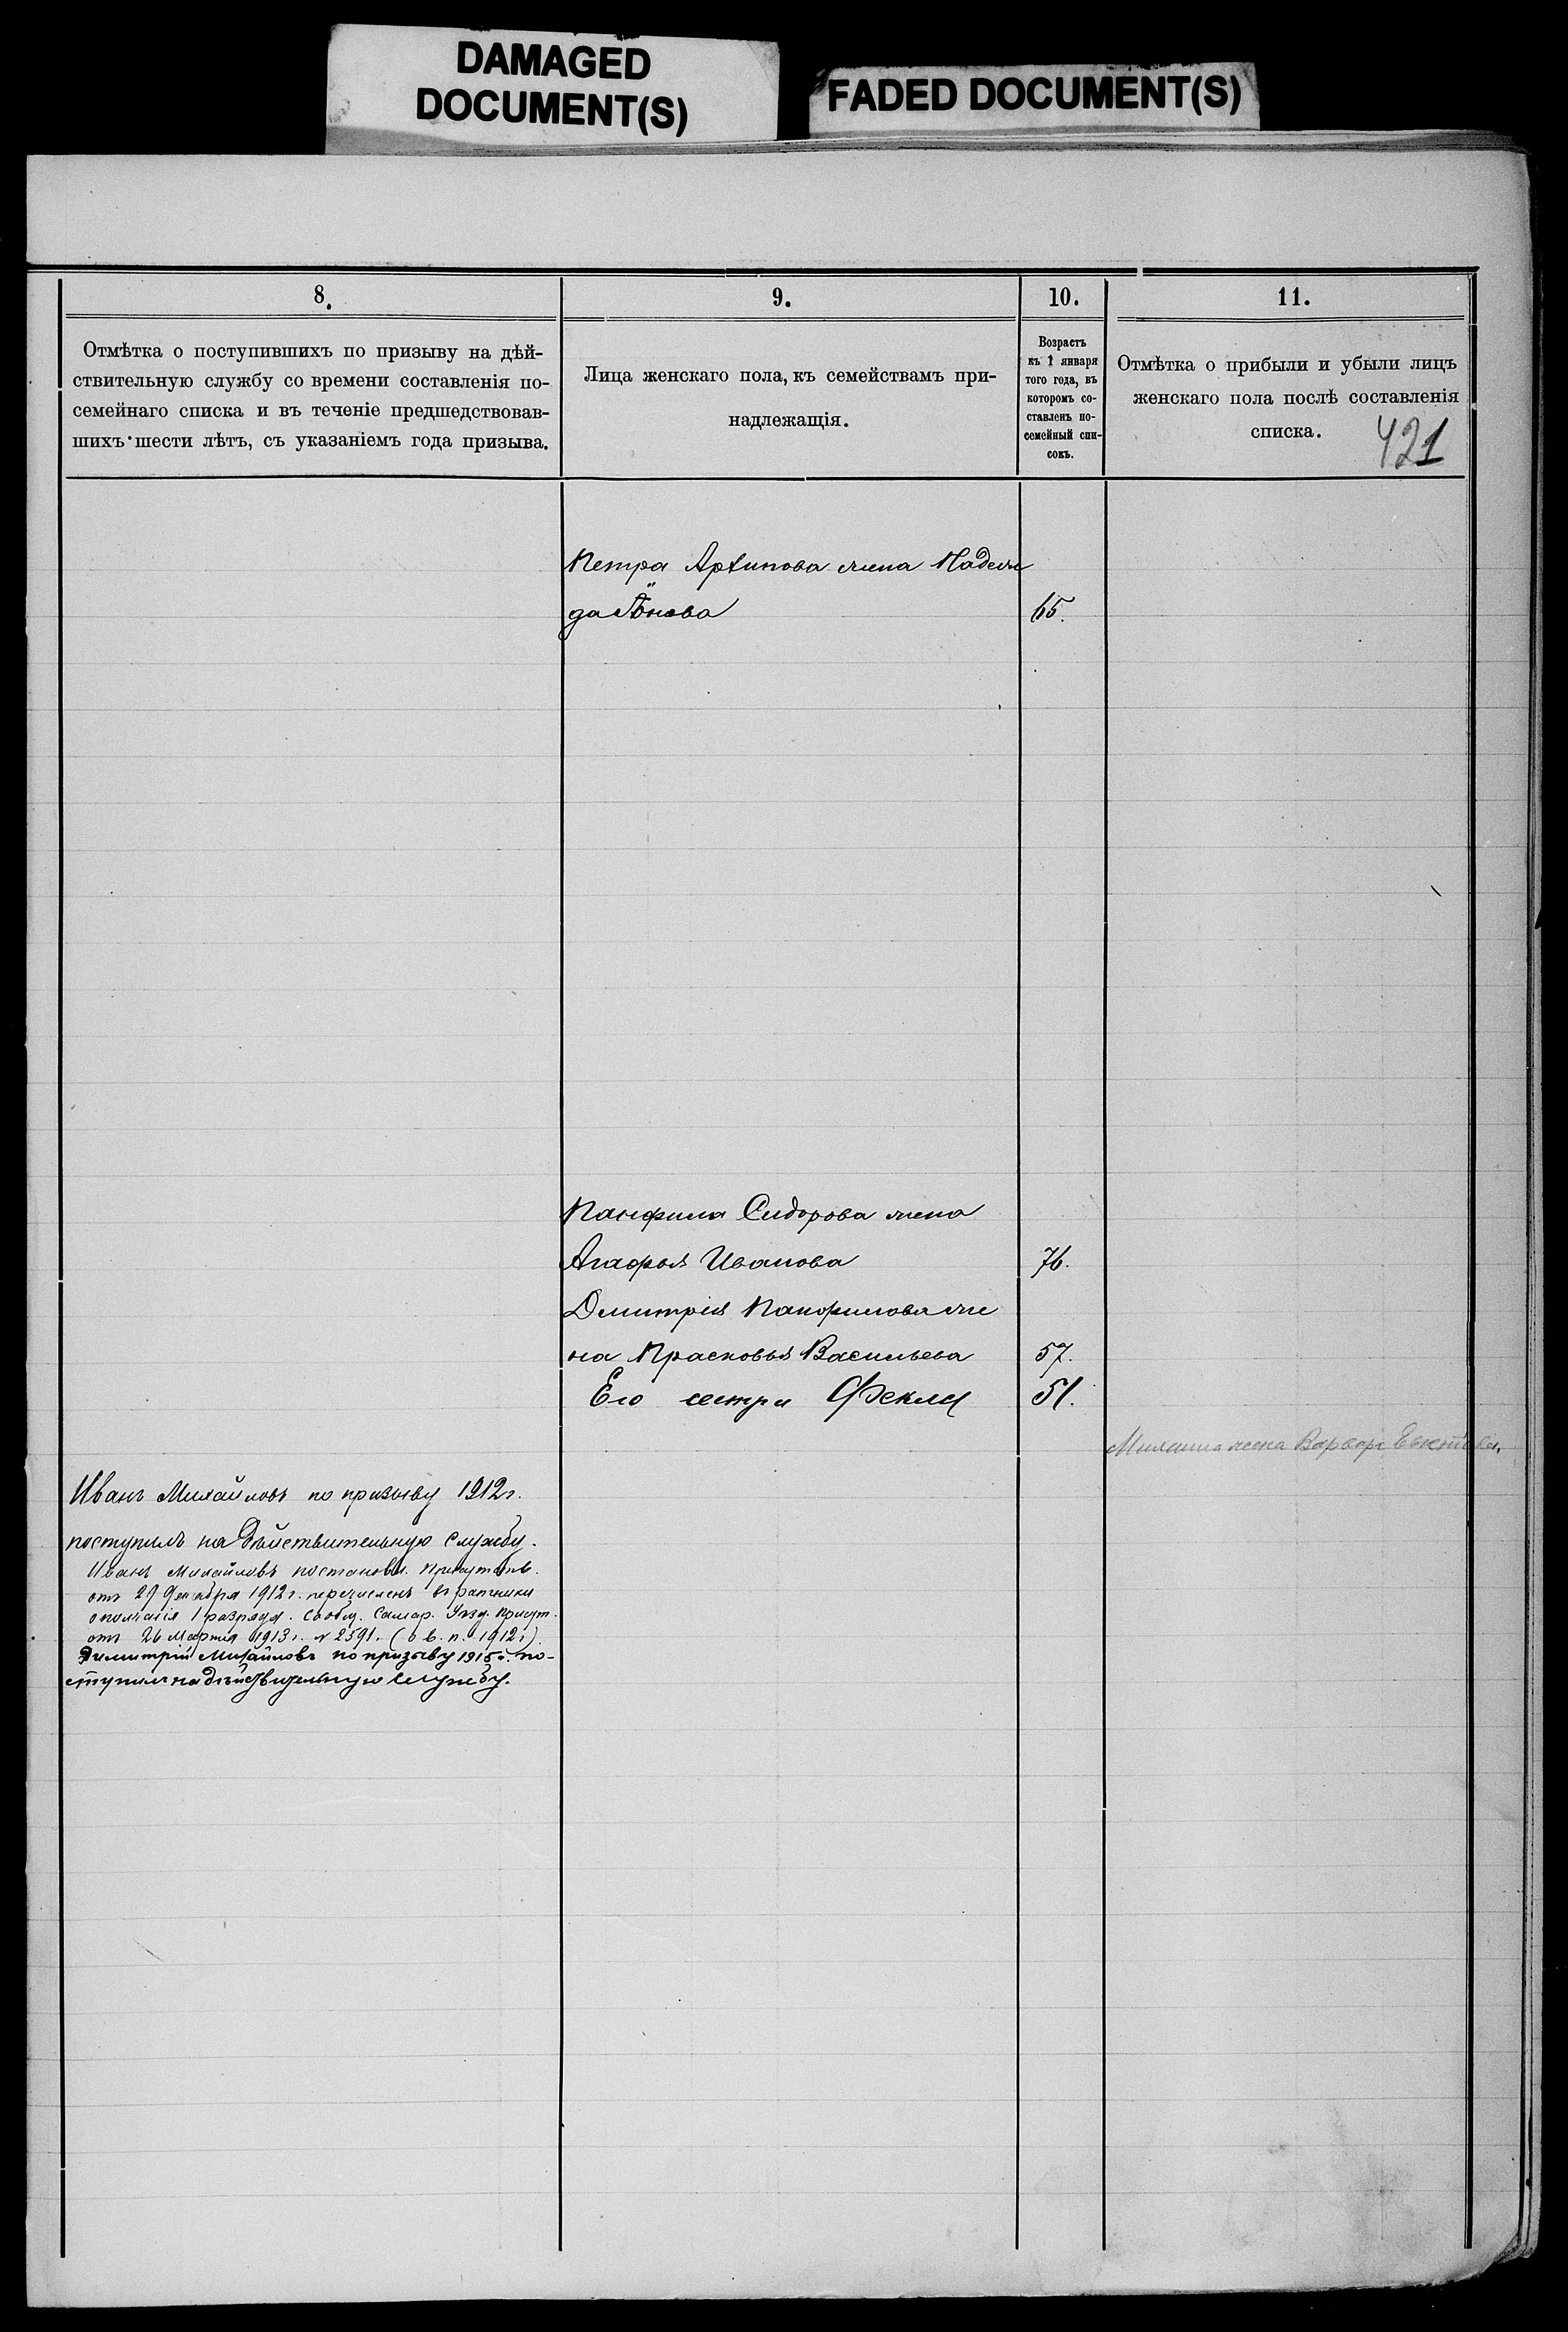 DAMAGED
DOCUMENT(S)
FADED DOCUMENT(S)
8.
Отмѣтка о поступившихъ по призыву на дѣй-
ствительную службу со времени составленія по-
семейнаго списка и въ теченіе предшедствовав-
шихъ шести лѣтъ, съ указаніемъ года призыва.
9.
Лица женскаго пола, къ семействамъ при-
надлежащія.
10.
Возрастъ
къ 1 января
того года, въ
которомъ со-
ставленъ по-
семейный спи-
сокъ.
11.
Отмѣтка о прибыли и убыли лицъ
женскаго пола послѣ составленія
списка.
421
Петра Архипова жена Надеж
да 65.
Панфила Сидорова жена
Агафья Иванова 76.
Дмитрія Панфилова же
на Прасковья Васильева 57.
Его сестра Фекла 51.
жена Варвара
Иванъ Михайловъ по призыву 1912 г.
поступилъ на дѣйствительную службу.
Иванъ Михайловъ постановл. Присутств.
отъ 29 декабря 1912 г. перечисленъ въ ратники
ополченія 1 разряда. Сообщ. Самар. Уѣзд. Присут.
отъ 26 Марта 1913 г. № 2591. (о в. п. 1912 г.)
Димитрій Михайловъ по призыву 1915 г. по-
ступилъ на дѣйствительную службу.